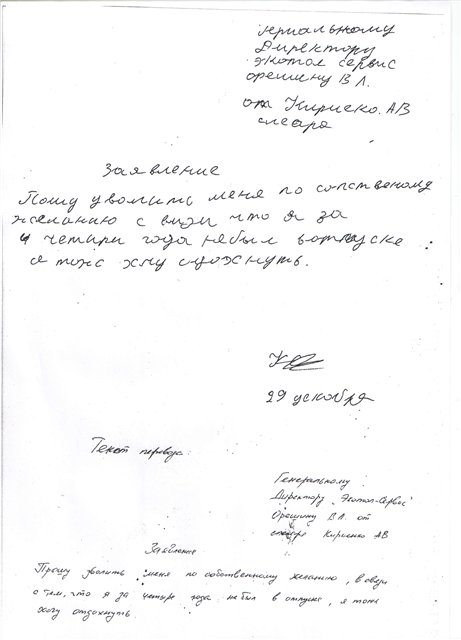 нериальному
Директору
экотол сервис
орешину В Л.
от Кириеко. АВ
слеара
Заявление
Пошу уволить меня по сопственому
желанию с визи что я за
4 четири года небыл вотпуске
я тоже хчу одохнуть.
29 ускобря
Текст перевода:
Генеральному
Директору "Экотол-Сервис"
Орешину В.Л. от
слесаря Кириенко АВ
Заявление
Прошу уволить меня по собственному желанию, в связи
с тем, что я за четыре года не был в отпуске, я тоже
хочу отдохнуть.